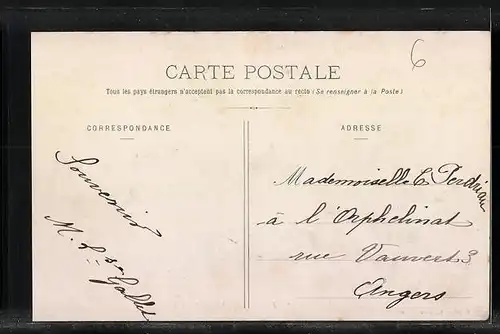 6
CARTE POSTALE
Tous les pays étrangers n'acceptent pas la correspondance au recto (Se renseigner à la Poste)
CORRESPONDANCE
ADRESSE
Souvenir
Mademoiselle C Perdriau
à l'Orphelinat
rue Vauvert 3
Angers